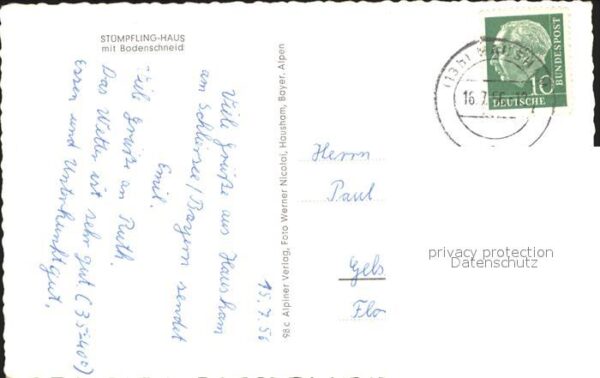 STÜMPFLING-HAUS
mit Bodenschneid
15.7.56
Viele Grüße aus Hausham
am Schliersee/Bayern sendet
Emil.
Viele Grüße an Ruth.
Das Wetter ist sehr gut (35-40°)
Essen und Unterkunft gut.
98c Alpiner Verlag, Foto Werner Nicolai, Hausham, Bayer. Alpen
(13b) HAUSH
16.7.56
10
DEUTSCHE
BUNDESPOST
Herrn
Paul
Gels
Flo
privacy protection
Datenschutz